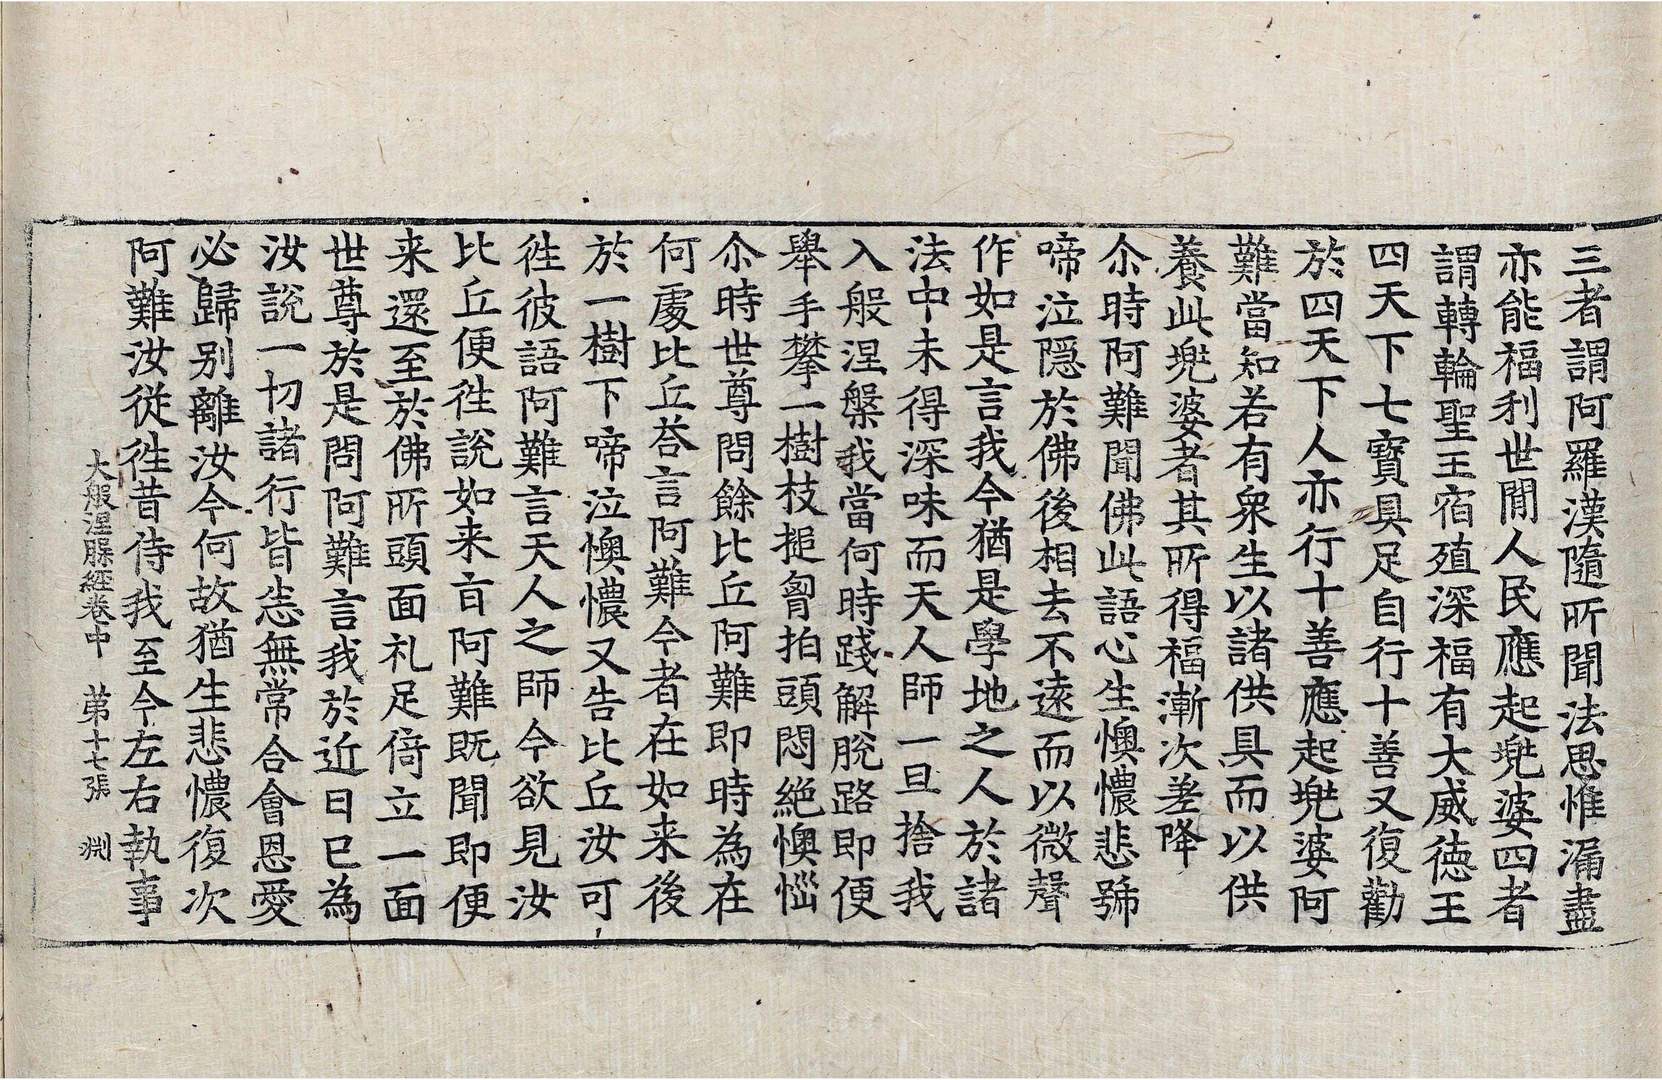 三者謂阿羅漢隨所聞法思惟漏盡
亦能福利世間人民應起兠婆四者
謂轉輪聖王宿殖深福有大威德王
四天下七寶具足自行十善又復勸
於四天下人亦行十善應起兠婆阿
難當知若有衆生以諸供具而以供
養此兠婆者其所得福漸次差降
尒時阿難聞佛此語心生懊憹悲號
啼泣隱於佛後相去不遠而以微聲
作如是言我今猶是學地之人於諸
法中未得深味而天人師一旦捨我
入般涅槃我當何時踐解脫路即便
舉手攀一樹枝搥胷拍頭悶絕懊惱
尒時世尊問餘比丘阿難即時為在
何處比丘荅言阿難今者在如来後
於一樹下啼泣懊憹又告比丘汝可
徃彼語阿難言天人之師今欲見汝
比丘便徃說如来言阿難既聞即便
来還至於佛所頭面礼足倚立一面
世尊於是問阿難言我於近日已為
汝說一切諸行皆悉無常合會恩愛
必歸別離汝今何故猶生悲憹復次
阿難汝從徃昔侍我至今左右執事
大般涅槃經卷中　第十七張　渕